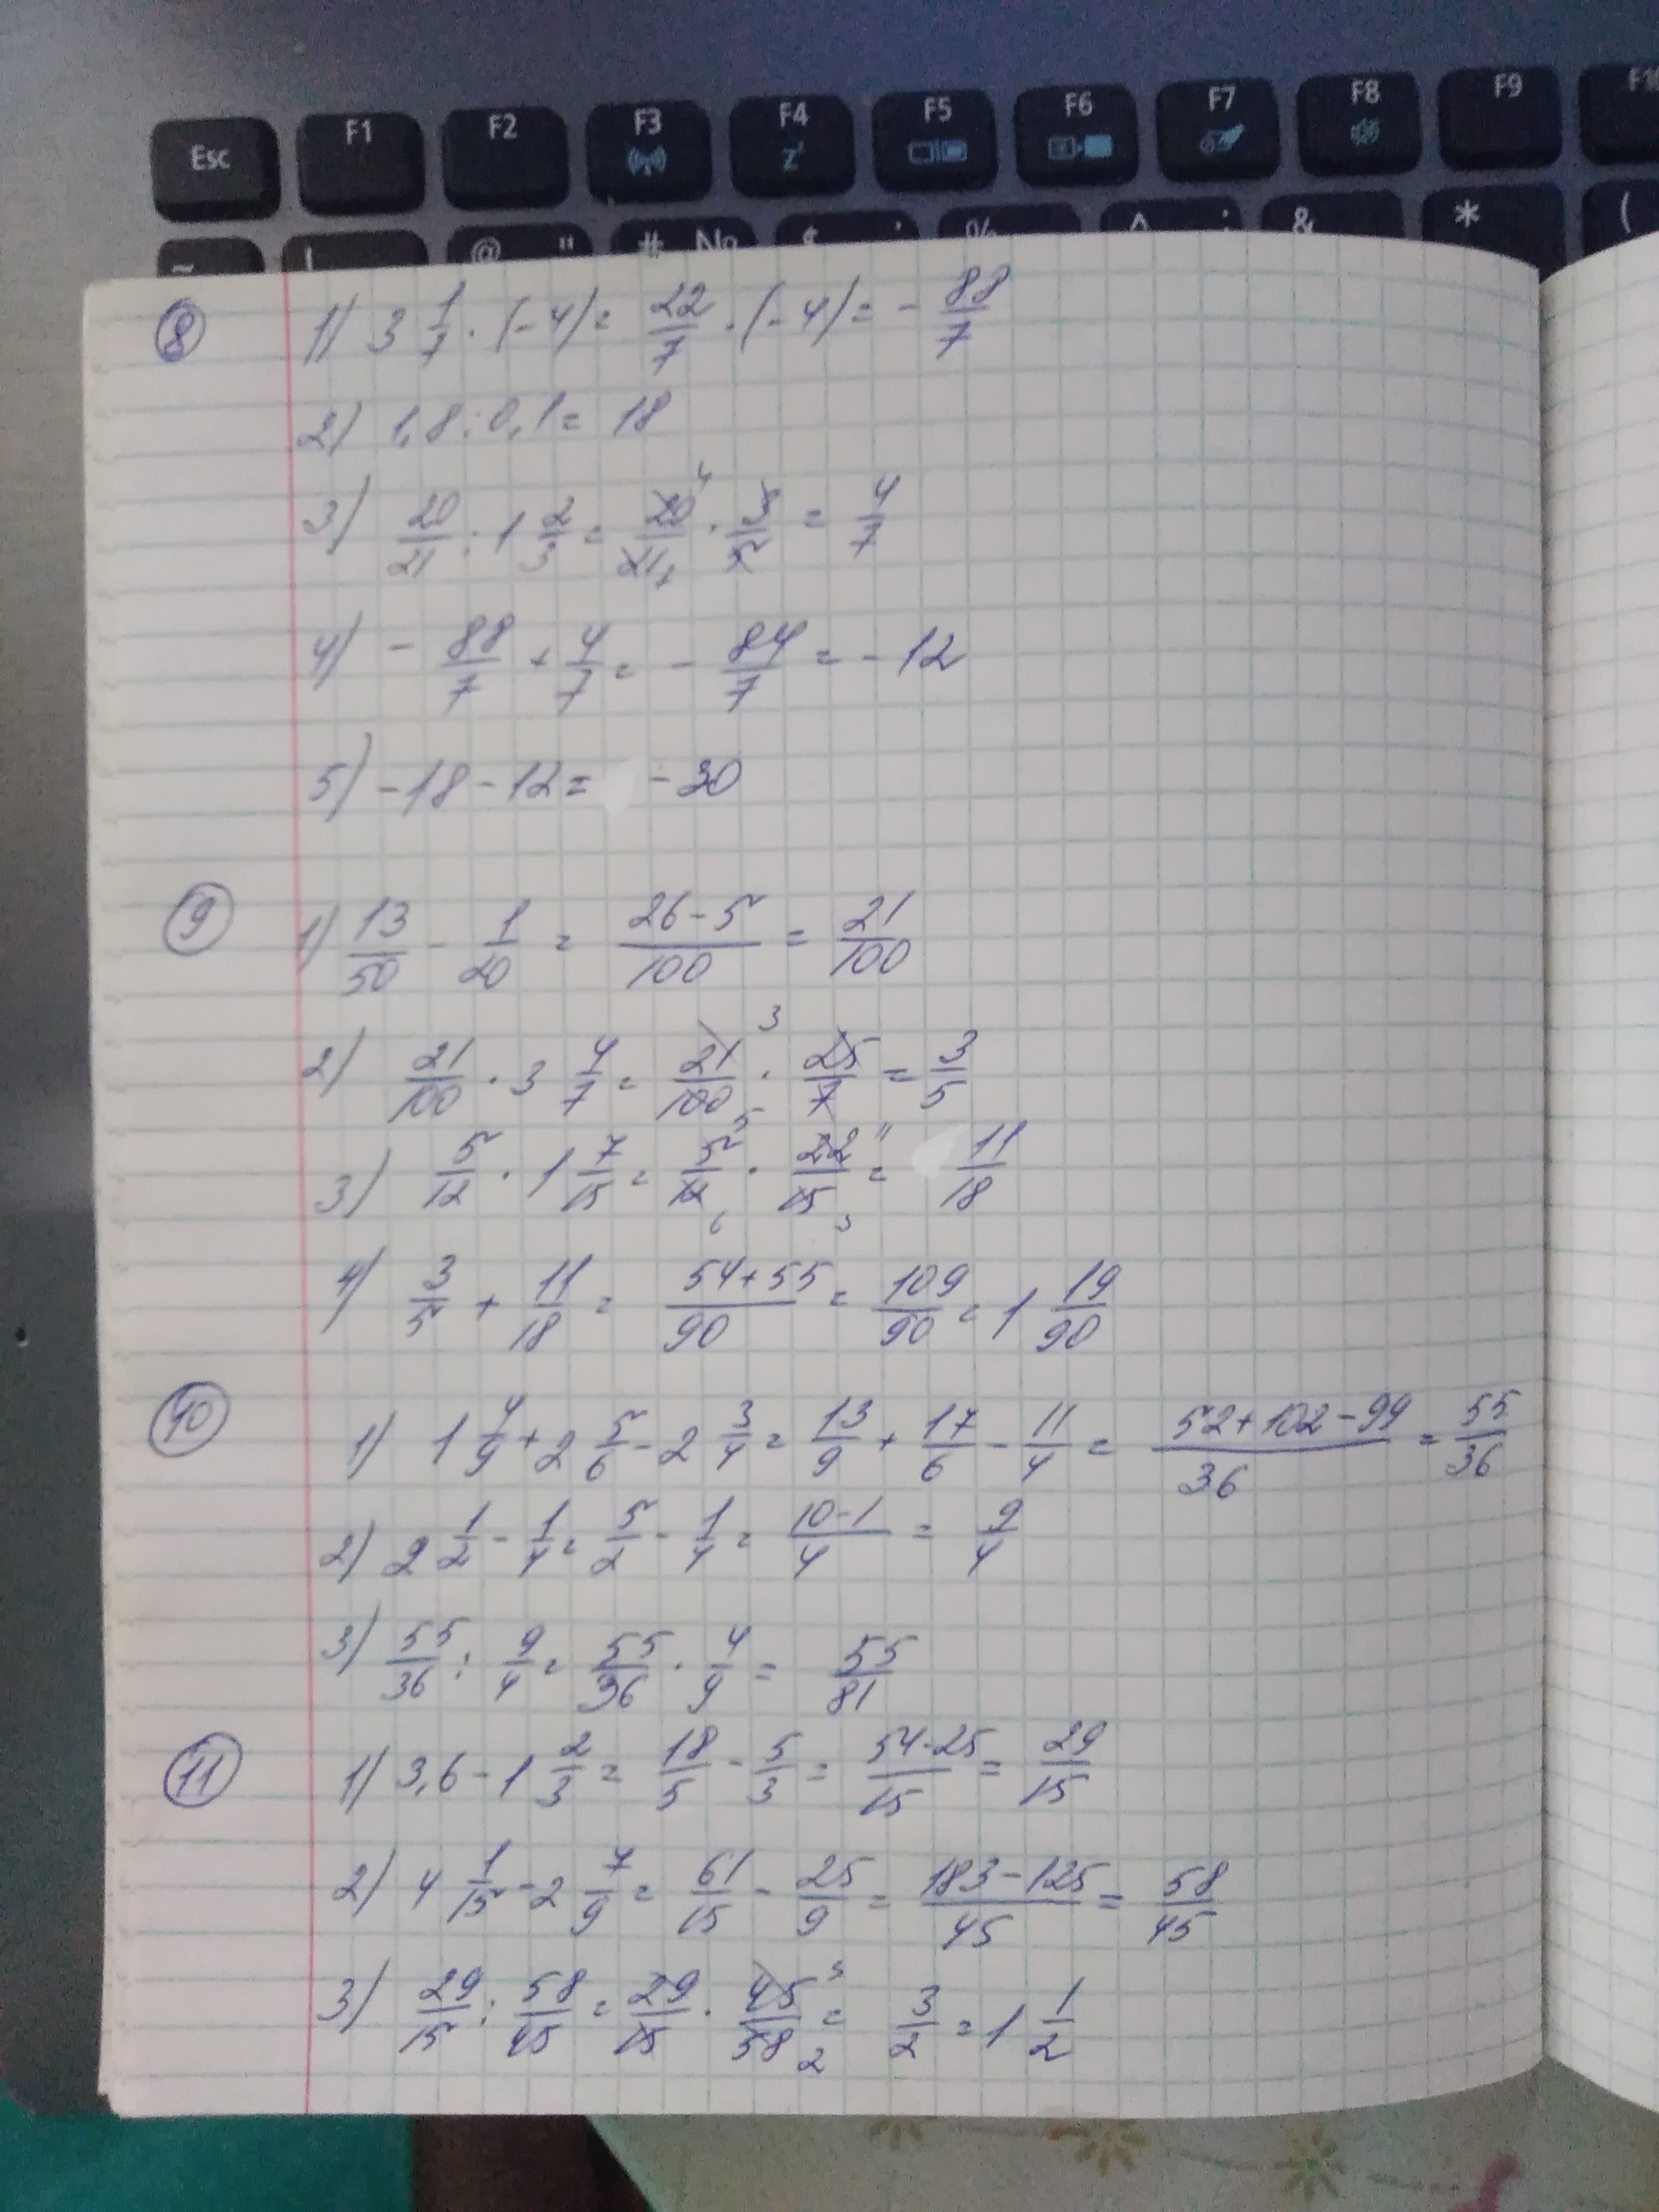 Esc F1 F2 F3 F4 F5 F6 F7 F8 F9 F10
~ ! @ " # № $ ; % ^ : & * (
8 1) 3 1/7 · (-4) = 22/7 · (-4) = - 88/7
2) 1,8 : 0,1 = 18
3) 20/21 : 1 2/3 = 20/21 · 3/5 = 4/7
4) - 88/7 + 4/7 = - 84/7 = - 12
5) - 18 - 12 = - 30
9 1) 13/50 - 1/20 = (26 - 5)/100 = 21/100
2) 21/100 · 3 4/7 = 21/100 · 25/7 = 3/5
3) 5/12 · 1 7/15 = 5/12 · 22/15 = 11/18
4) 3/5 + 11/18 = (54 + 55)/90 = 109/90 = 1 19/90
10 1) 1 4/9 + 2 5/6 - 2 3/4 = 13/9 + 17/6 - 11/4 = (52 + 102 - 99)/36 = 55/36
2) 2 1/2 - 1/4 = 5/2 - 1/4 = (10 - 1)/4 = 9/4
3) 55/36 : 9/4 = 55/36 · 4/9 = 55/81
11 1) 3,6 - 1 2/3 = 18/5 - 5/3 = (54 - 25)/15 = 29/15
2) 4 1/15 - 2 7/9 = 61/15 - 25/9 = (183 - 125)/45 = 58/45
3) 29/15 : 58/45 = 29/15 · 45/58 = 3/2 = 1 1/2